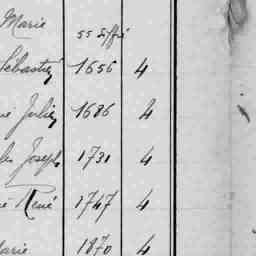 Marie 55
Sébastien 1656 4
Julien 1686 4
Joseph 1731 4
René 1747 4
Marie 1870 4